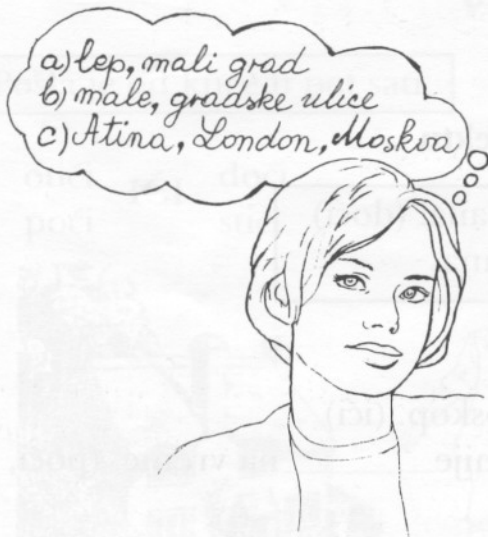 a) lep, mali grad
b) male, gradske ulice
c) Atina, London, Moskva